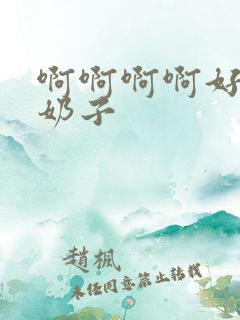 啊啊啊啊好
奶子
趙楓
未经同意禁止转载